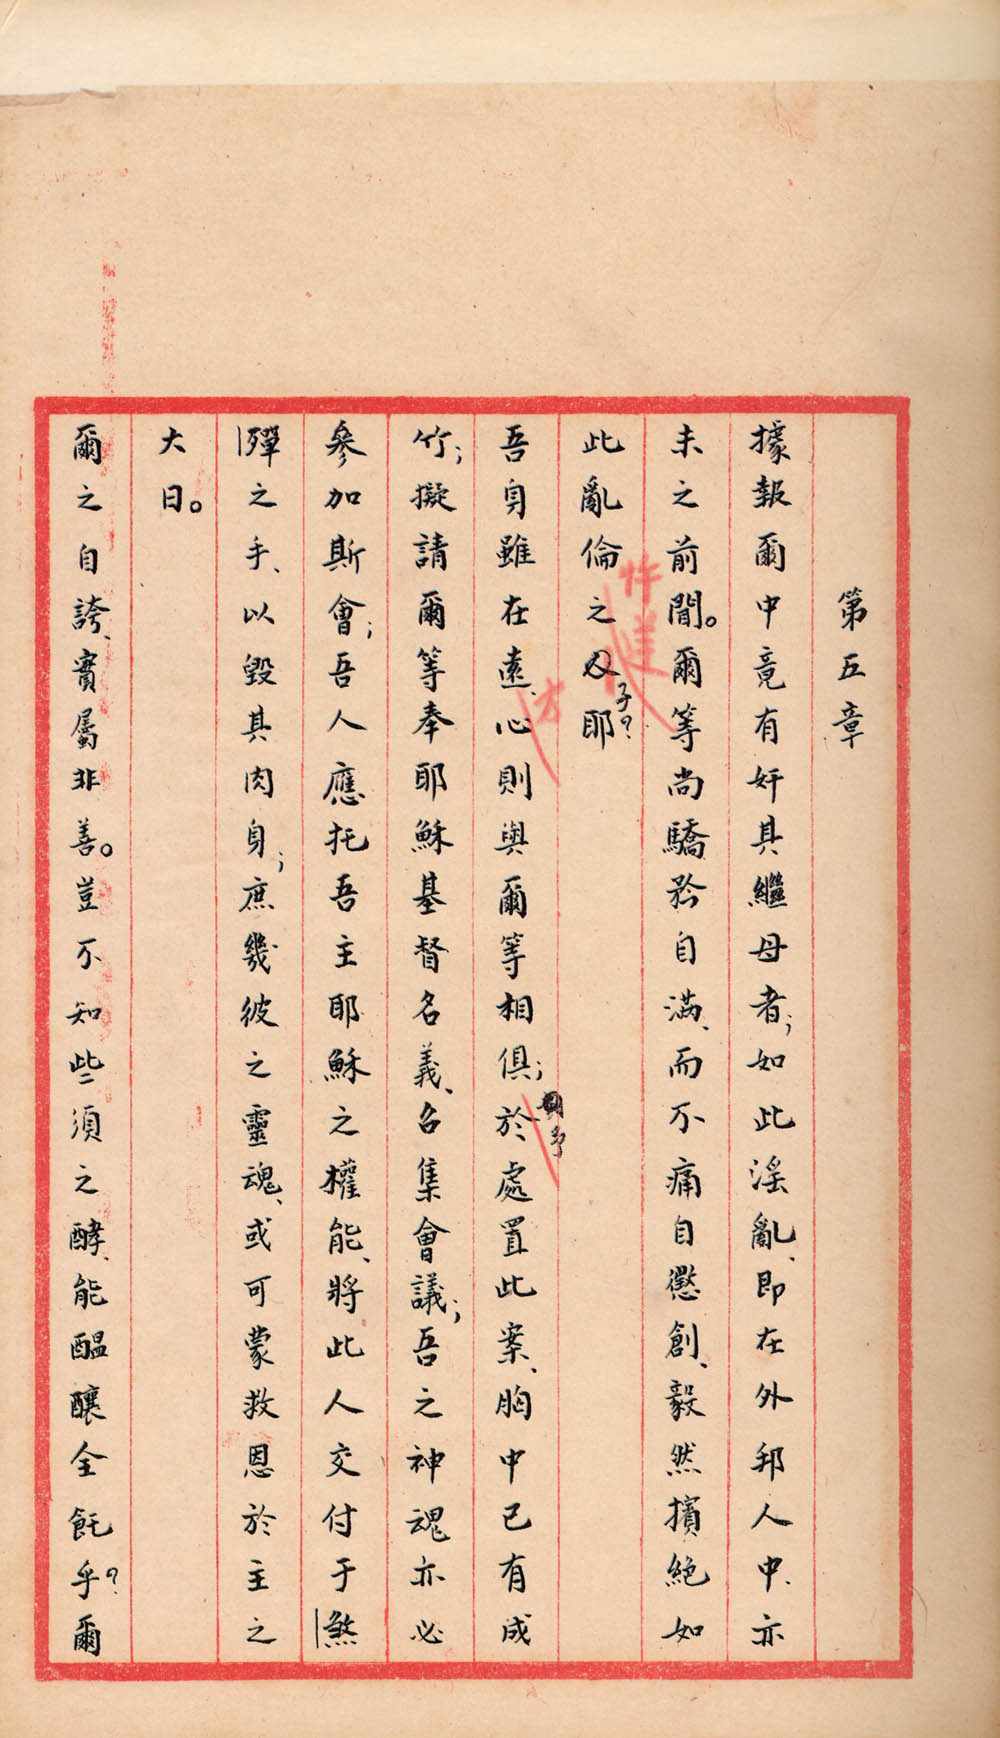 第五章
據報爾中竟有奸其繼母者;如此淫亂、即在外邦人中、亦
未之前聞。爾等尚驕矜自滿、而不痛自懲創、毅然擯絕如
此亂倫之子耶?
吾身雖在遠、心則與爾等相俱;於處置此案、胸中已有成
竹;擬請爾等奉耶穌基督名義、召集會議;吾之神魂亦必
參加斯會;吾人應托吾主耶穌之權能、將此人交付于煞
殫之手、以毀其肉身;庶幾彼之靈魂、或可蒙救恩於主之
大日。
爾之自誇、實屬非善。豈不知些須之酵、能醞釀全飥乎?爾